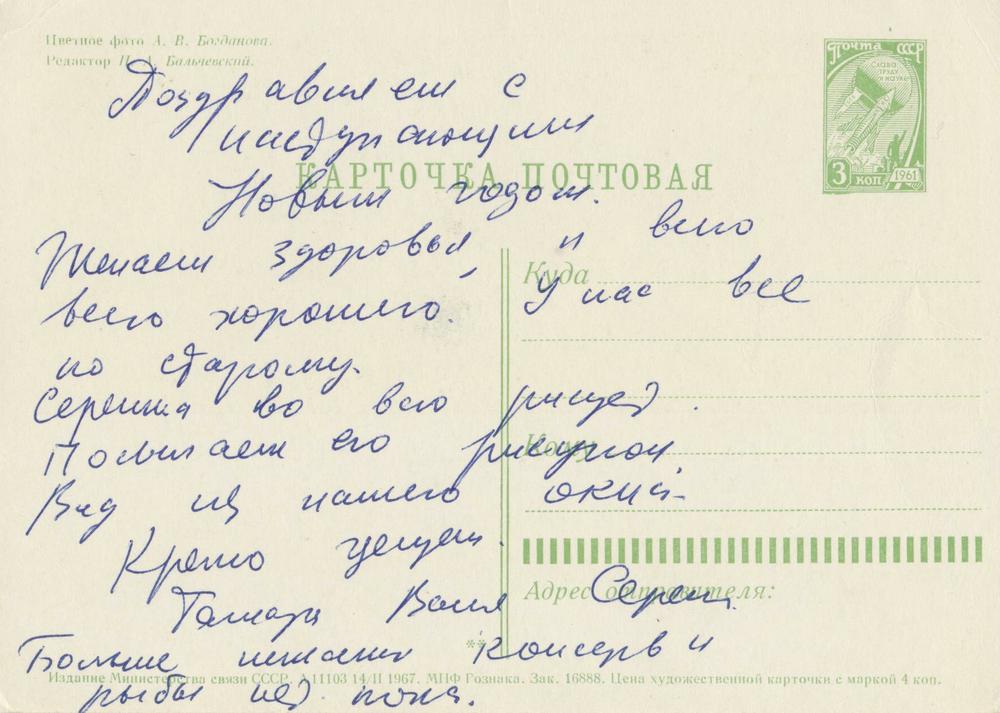 Цветное фото А. В. Богданова.
Редактор Бальчевский.
Почта СССР
СЛАВА ТРУДУ И НАУКЕ
3 КОП 1961
КАРТОЧКА ПОЧТОВАЯ
Поздравляем с
наступающим
Новым годом.
Желаем здоровья, и всего
всего хорошего. У нас все
по старому.
Сережка во всю рисует.
Посылаем его рисунок.
Вид из нашего окна.
Крепко целуем.
Тамара Ваня Сереж.
Больше консерв и
рыбы нет пока.
Куда
Кому
Адрес отправителя:
**
Издание Министерства связи СССР. А 11103 14/II 1967. МПФ Гознака. Зак. 16888. Цена художественной карточки с маркой 4 коп.